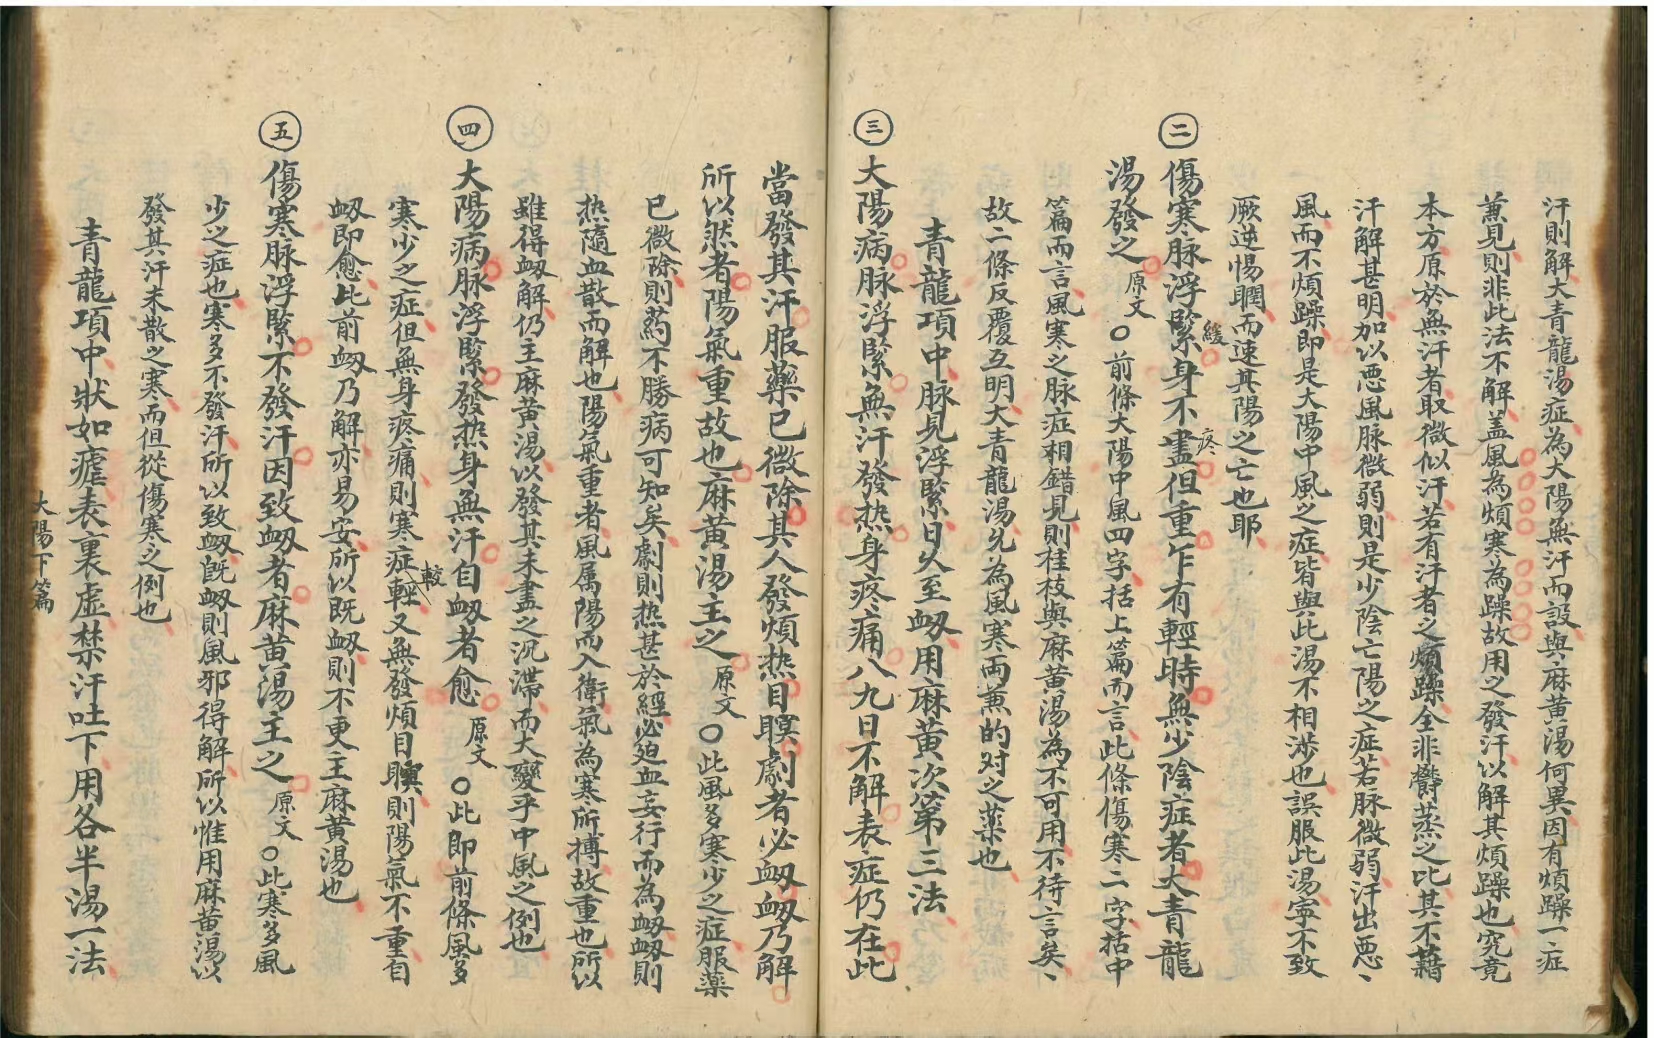 汗則解大青龍湯症為大陽無汗而設與麻黄湯何異因有煩躁一症
蒹見則非此法不解盖風為煩寒為躁故用之發汗以解其煩躁也究竟
本方原於無汗者取微似汗若有汗者之煩躁全非欝蒸之比其不藉
汗解甚明加以惡風脉微弱則是少陰亡陽之症若脉微弱汗出惡丶
風而不煩躁即是大陽中風之症皆與此湯不相涉也誤服此湯寧不致
厥逆惕瞤而速其陽之亡也耶
㊁傷寒脉浮緊緩身不盡疼但重乍有輕時無少陰症者大青龍
湯發之原文○前條大陽中風四字括上篇而言此條傷寒二字括中
篇而言風寒之脉症相錯見則桂枝與麻黄湯為不可用不待言矣丶
故二條反覆互明大青龍湯允為風寒両蒹的对之薬也
青龍項中脉見浮緊日久至衂用麻黄次第三法
㊂大陽病脉浮緊無汗發热身疼痛八九日不解表症仍在此
當發其汗服藥已微除其人發煩热目瞑劇者必衂衂乃解
所以然者陽氣重故也麻黄湯主之原文○此風多寒少之症服薬
已微除則药不勝病可知矣劇則热甚於經必廹血妄行而為衂衂則
热隨血散而解也陽氣重者風属陽而入衛氣為寒所搏故重也所以
雖得衂解仍主麻黄湯以發其未盡之沉滯而大變乎中風之例也
㊃大陽病脉浮緊發热身無汗自衂者愈原文○此即前條風多
寒少之症但無身疼痛則寒症輕較又無發煩目瞑則陽氣不重自
衂即愈此前衂乃解亦易安所以既衂則不更主麻黄湯也
㊄傷寒脉浮緊不發汗因致衂者麻黄湯主之原文○此寒多風
少之症也寒多不發汗所以致衂旣衂則風邪得解所以惟用麻黄湯以
發其汗未散之寒而但從傷寒之例也
青龍項中狀如瘧表裏虛禁汗吐下用各半湯一法
大陽下篇